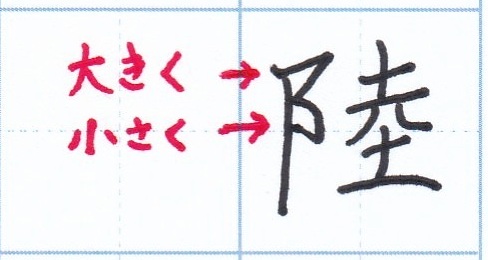 大きく → 陸
小さく →